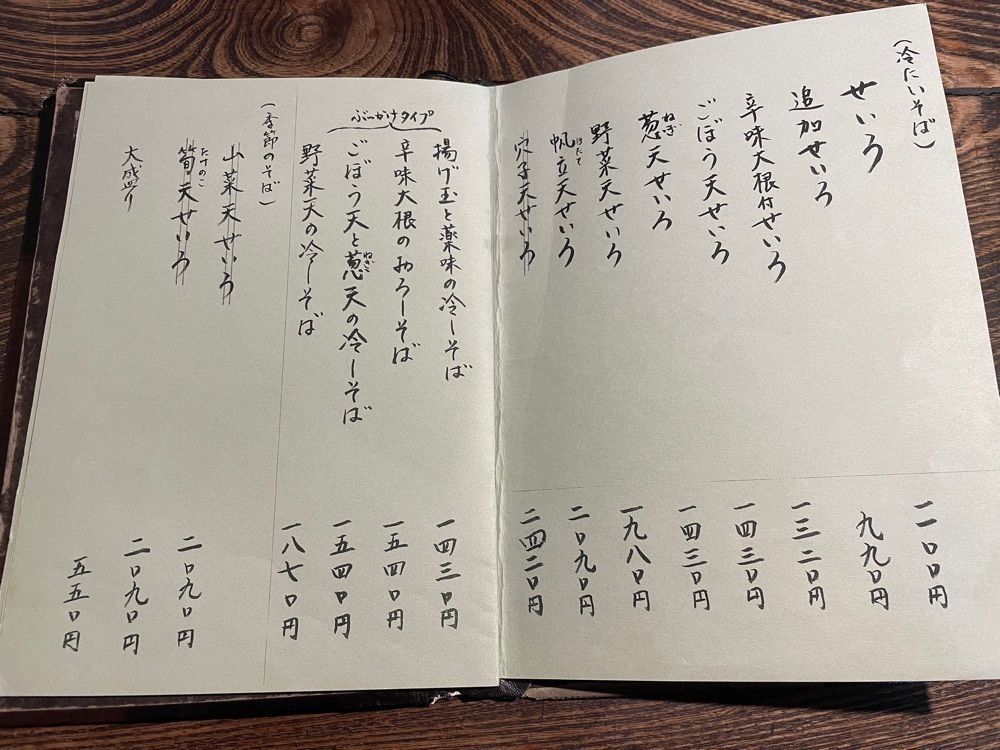 （冷たいそば）
せいろ
一一〇〇円
追加せいろ
九九〇円
辛味大根付せいろ
一三二〇円
ごぼう天せいろ
一四三〇円
ねぎ
葱天せいろ
一四三〇円
野菜天せいろ
一九八〇円
ほたて
帆立天せいろ
二〇九〇円
穴子天せいろ
二四二〇円
ぶっかけタイプ
揚げ玉と薬味の冷しそば
一四三〇円
辛味大根のおろしそば
一五四〇円
ねぎ
ごぼう天と葱天の冷しそば
一五四〇円
野菜天の冷しそば
一八七〇円
（季節のそば）
山菜天せいろ
二〇九〇円
たけのこ
筍天せいろ
二〇九〇円
大盛り
五五〇円